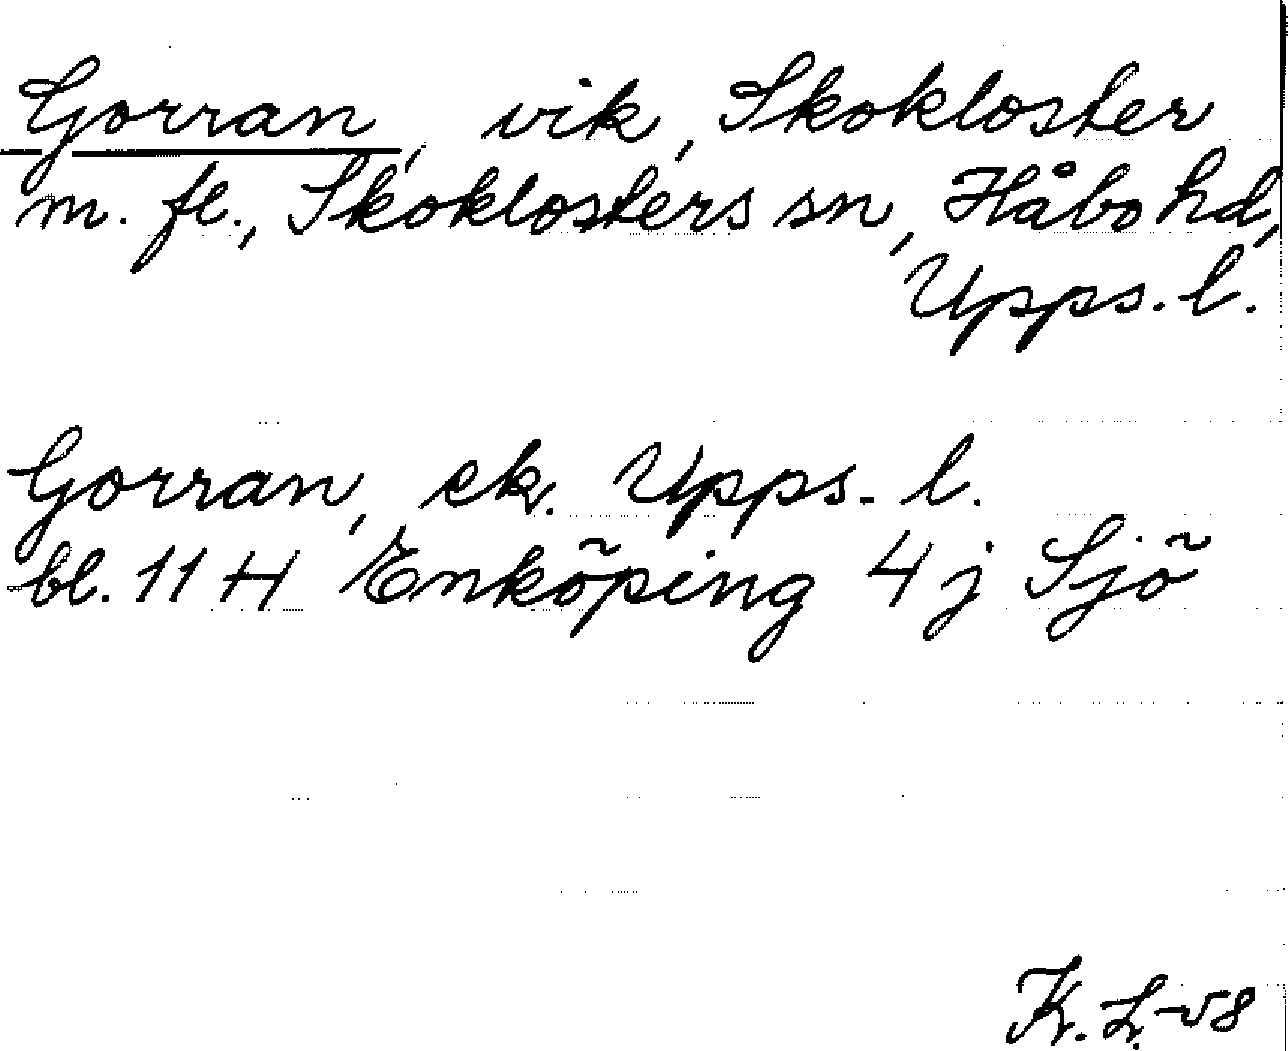 Gorran, vik, Skokloster
m. fl., Skoklosters sn, Håbo hd,
Upps. l.
Gorran, ek. Upps. l.
bl. 11 H Enköping 4 j Sjö
K. L. -58